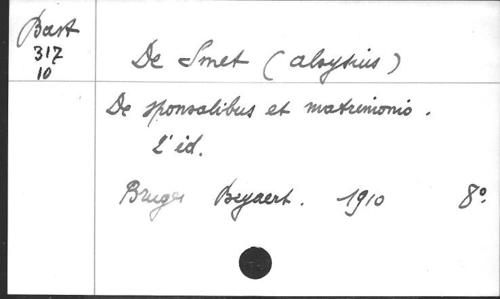 Bast
317
10
De Smet (Aloysius)
De sponsalibus et matrimonio.
2' éd.
Bruges Beyaert. 1910 8º